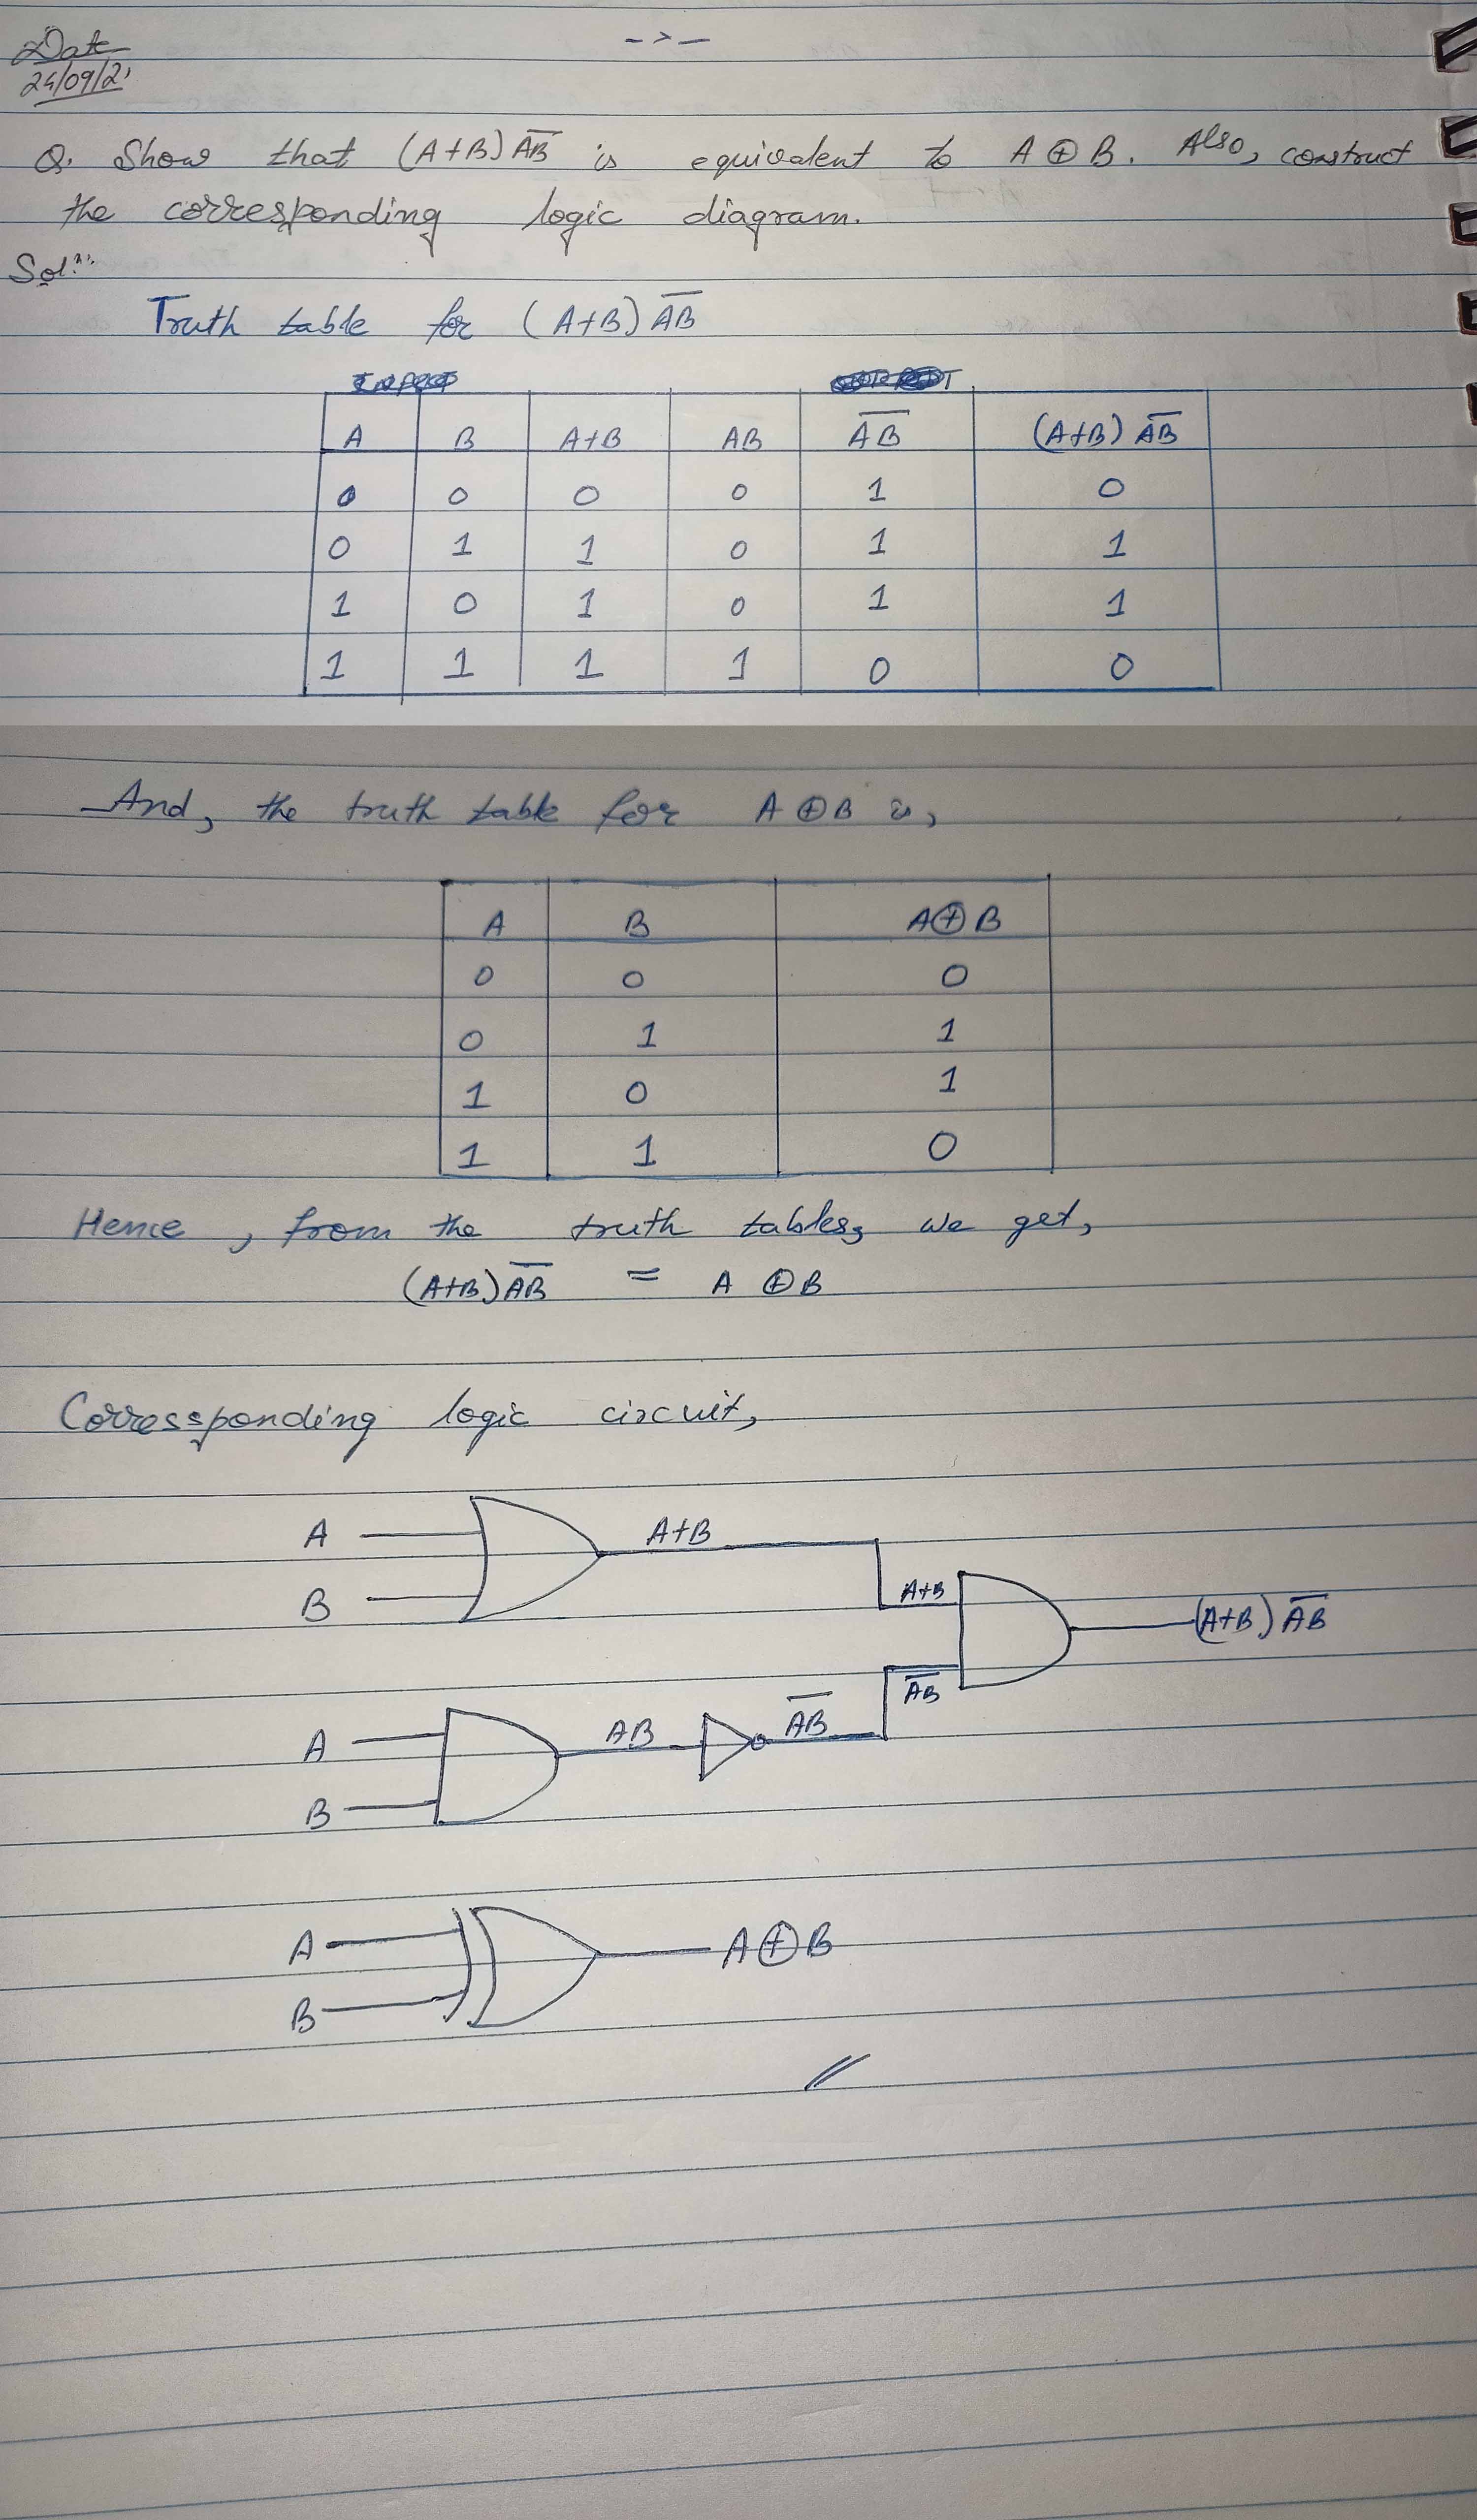 Date
24/09/21
->-
Q. Show that (A+B) A̅B̅ is equivalent to A ⊕ B. Also, construct
the corresponding logic diagram.
Solⁿ:
Truth table for (A+B) A̅B̅
A B A+B AB A̅B̅ (A+B) A̅B̅
0 0 0 0 1 0
0 1 1 0 1 1
1 0 1 0 1 1
1 1 1 1 0 0
And, the truth table for A ⊕ B is,
A B A⊕B
0 0 0
0 1 1
1 0 1
1 1 0
Hence, from the truth tables, we get,
(A+B) A̅B̅ = A ⊕ B
Corressponding logic circuit,
A A+B
B A+B (A+B) A̅B̅
A̅B̅
A AB A̅B̅
B
A A⊕B
B